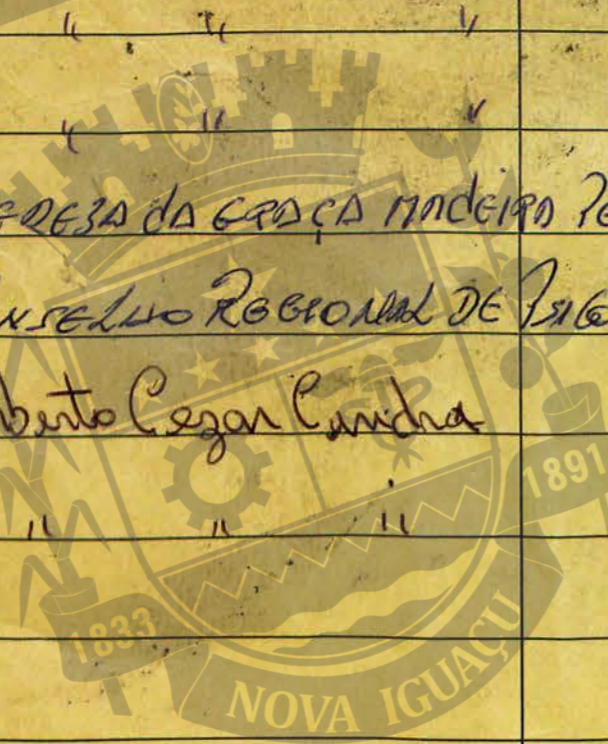 " " "
" " "
EREZA DA GRAÇA MADEIRA PE
NSELHO REGIONAL DE PSICO
berto Cezar Cunha
" " "
1891
1833
NOVA IGUAÇU